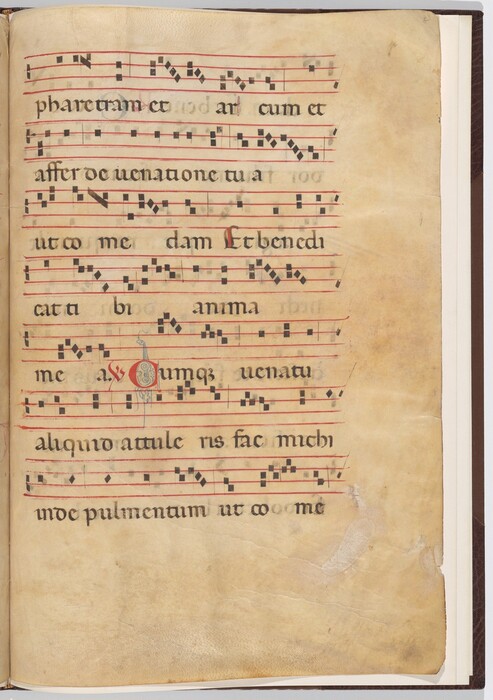 pharetram et ar cum et
affer de uenatione tu a
ut co me dam Et benedi
cat ti bi anima
me a. V Cumqꝫ uenatu
aliquid attule ris fac michi
inde pulmentum ut co mē